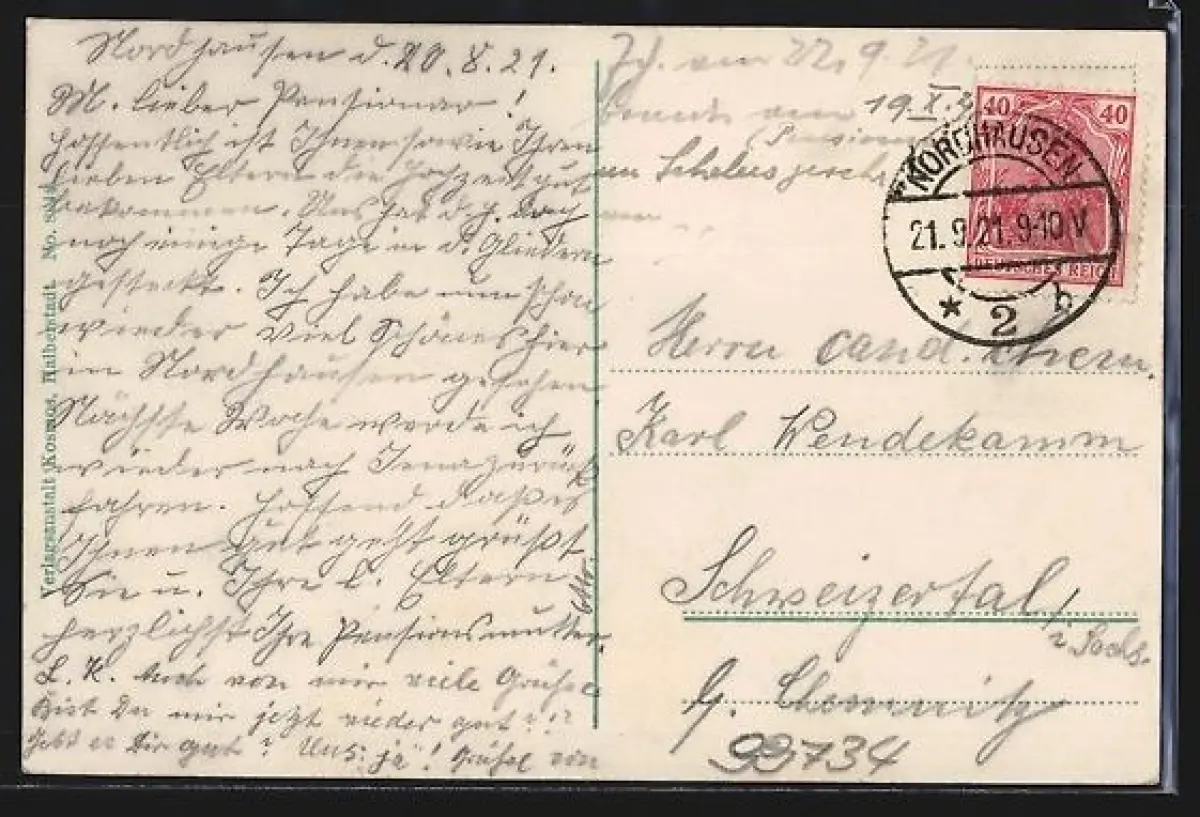 Nordhausen d. 20.8.21.
M. lieber Pensionär!
Hoffentlich ist Ihnen sowie Ihren
lieben Eltern die Hochzeit gut
bekommen. Uns hat d. J. doch
noch einige Tage in d. Gliedern
gesteckt. Ich habe nun schon
wieder viel Schönes hier
in Nordhausen gesehen.
Nächste Woche werde ich
wieder nach Jena zurück
fahren. Hoffend daß es
Ihnen gut geht grüßt
Sie u. Ihre l. Eltern
herzlichst Ihre Pensionsmutter.
L. K. Auch von mir viele Grüße
Bist Du mir jetzt wieder gut??
Geht es Dir gut? Uns: ja! Grüße von
Verlagsanstalt Kosmos, Halberstadt. No.
22.9.21.
19.X.
40 40
DEUTSCHES REICH
NORDHAUSEN
21.9.21.9-10V
* 2 b
Herrn cand. chem.
Karl Wendekamm
Schweizertal
i. Sachs.
b. Chemnitz
99734